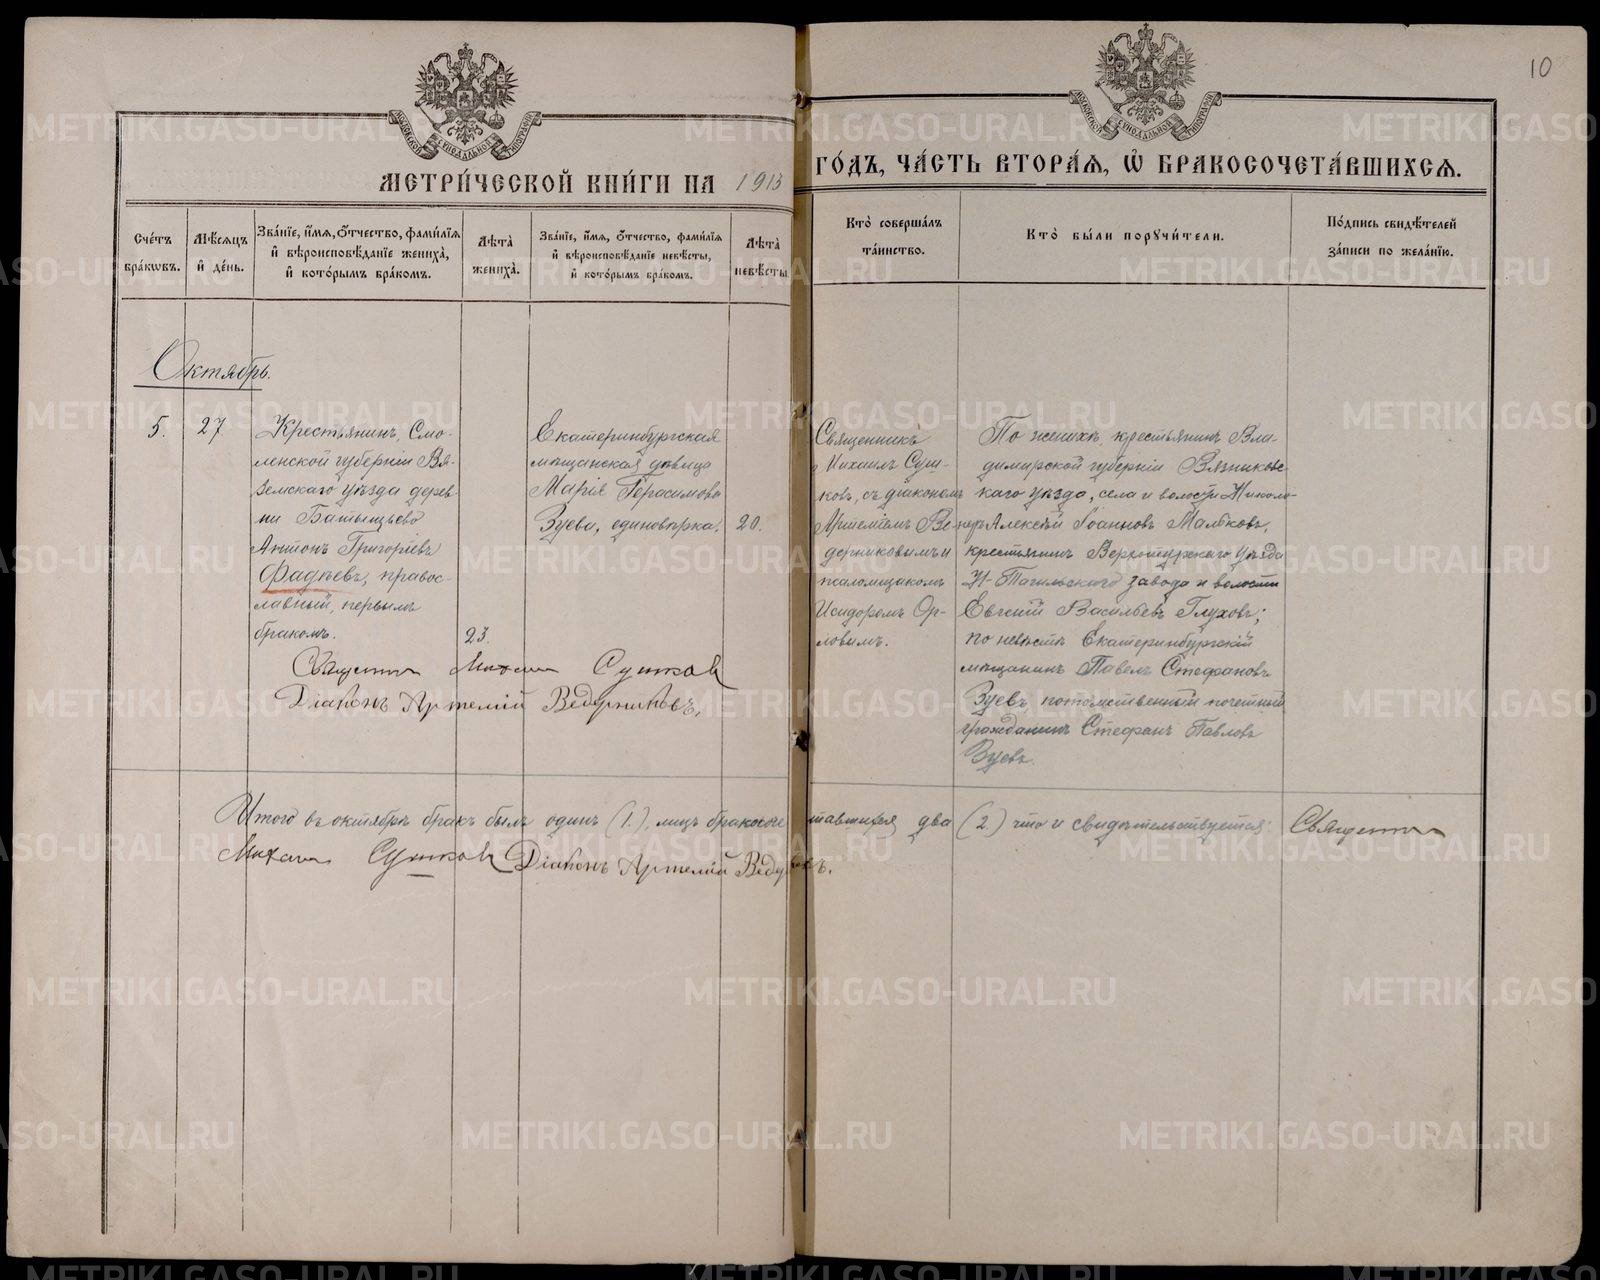 10
МОСКОВСКОЙ СѶНОДАЛЬНОЙ ТИПОГРАФІИ
МОСКОВСКОЙ СѶНОДАЛЬНОЙ ТИПОГРАФІИ
МЕТРИ́ЧЕСКОЙ КНИ́ГИ НА 1913 ГО́ДЪ, ЧА́СТЬ ВТОРА́Я, Ѽ БРАКОСОЧЕТА́ВШИХСѦ.
Сче́тъ бра́кѡвъ.
Мѣ́сяцъ и҆ де́нь.
Зва́нїе, и҆́мя, ѻ҆́тчество, фами́лїя и҆ вѣроисповѣ́данїе жениха̀, и҆ кото́рымъ бра́комъ.
Лѣ́та жениха̀.
Зва́нїе, и҆́мя, ѻ҆́тчество, фами́лїя и҆ вѣроисповѣ́данїе невѣ́сты, и҆ кото́рымъ бра́комъ.
Лѣ́та невѣ́сты.
Кто̀ соверша́лъ та́инство.
Кто̀ бы́ли порꙋчи́тели.
По́дпись свидѣ́телей за́писи по жела́нїю.
Октябрь.
5.
27
Крестьянинъ, Смо-
ленской губерніи Вя-
земскаго уѣзда дерев-
ни Батищево
Антонъ Григоріевъ
Фадѣевъ, правос-
лавный, первымъ
бракомъ.
23.
Екатеринбургская
мѣщанская дѣвица
Марія Герасимова
Зуева, единовѣрка.
20.
Священникъ
Михаилъ Суш-
ковъ, съ діакономъ
Артеміемъ Ве-
дерниковымъ и
псаломщикомъ
Исидоромъ Ор-
ловымъ.
По женихѣ, крестьянинъ Вла-
димирской губерніи Вязниковс-
каго уѣзда, села и волости Николо-
Алексѣй Іоанновъ Малковъ,
крестьянинъ Верхотурскаго уѣзда
Н-Тагильскаго завода и волости
Евгеній Васильевъ Глуховъ;
по невѣстѣ Екатеринбургскій
мѣщанинъ Павелъ Стефановъ
Зуевъ, потомственный почетный
гражданинъ Стефанъ Павловъ
Зуевъ.
Священник Михаил Сушков
Діаконъ Артемій Ведерниковъ,
Итого въ октябрѣ бракъ былъ одинъ (1.), лицъ бракосочетавшихся два (2.) что и свидѣтельствуется: Священник
Михаил Сушков Діаконъ Артемій Ведерниковъ.
METRIKI.GASO-URAL.RU